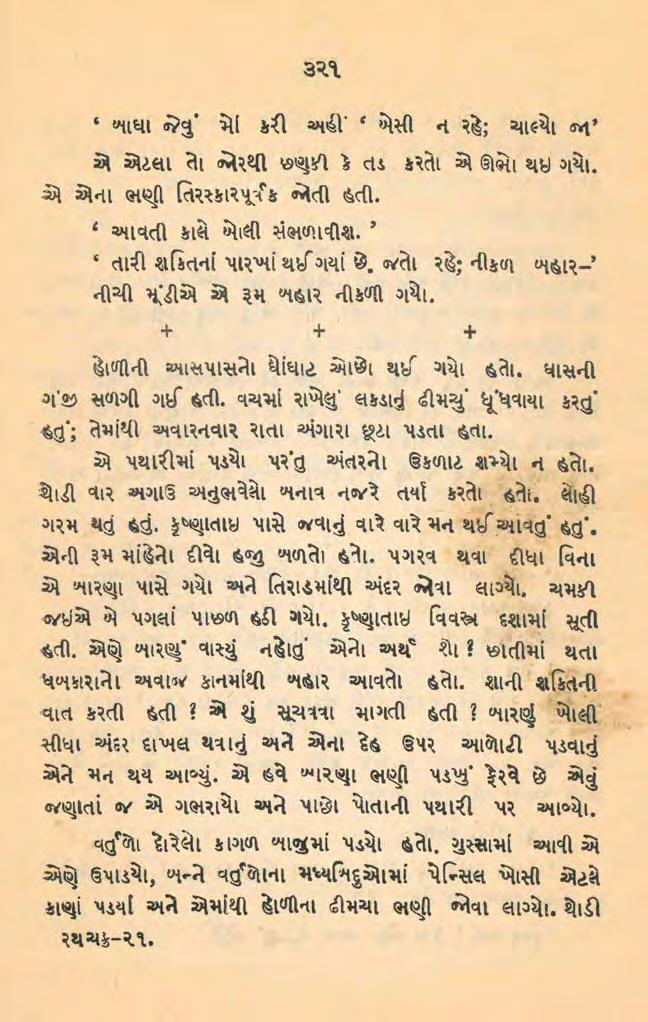 ૩૨૧
‘ બાઘા જેવું મોં કરી અહીં ‘ બેસી ન રહે; ચાલ્યો જા’
એ એટલા તો જોરથી છણકી કે તડ કરતો એ ઊભો થઇ ગયો.
એ એના ભણી તિરસ્કારપૂર્વક જોતી હતી.
‘ આવતી કાલે બોલી સંભળાવીશ. ’
‘ તારી શક્તિનાં પારખાં થઈ ગયાં છે. જતો રહે; નીકળ બહાર–’
નીચી મૂંડીએ એ રૂમ બહાર નીકળી ગયો.
+ + +
હોળીની આસપાસનો ઘોંઘાટ ઓછો થઈ ગયો હતો. ઘાસની
ગંજી સળગી ગઈ હતી. વચમાં રાખેલું લકડાનું ઢીમચું ધૂંધવાયા કરતું
હતું; તેમાંથી અવારનવાર રાતા અંગારા છૂટા પડતા હતા.
એ પથારીમાં પડયો પરંતુ અંતરનો ઉકળાટ શમ્યો ન હતો.
થોડી વાર અગાઉ અનુભવેલો બનાવ નજરે તર્યા કરતો હતો. લોહી
ગરમ થતું હતું. કૃષ્ણાતાઇ પાસે જવાનું વારે વારે મન થઈ આવતું હતું.
એની રૂમ માંહેનો દીવો હજુ બળતો હતો. પગરવ થવા દીધા વિના
એ બારણા પાસે ગયો અને તિરાડમાંથી અંદર જોવા લાગ્યો. ચમકી
જઇએ બે પગલાં પાછળ હઠી ગયો. કૃષ્ણાતાઇ વિવસ્ત્ર દશામાં સૂતી
હતી. એણે બારણું વાસ્યું નહોતું એનો અર્થ શો ? છાતીમાં થતા
ધબકારાનો અવાજ કાનમાંથી બહાર આવતો હતો. શાની શક્તિની
વાત કરતી હતી ? એ શું સૂચવવા માગતી હતી ? બારણું ખોલી
સીધા અંદર દાખલ થવાનું અને એના દેહ ઉપર આળોટી પડવાનું
એને મન થય આવ્યું. એ હવે બારણા ભણી પડખું ફેરવે છે એવું
જણાતાં જ એ ગભરાયો અને પાછો પોતાની પથારી પર આવ્યો.
વર્તુળો દોરેલો કાગળ બાજુમાં પડયો હતો. ગુસ્સામાં આવી એ
એણે ઉપાડયો, બન્ને વર્તુળોના મધ્યબિંદુઓમાં પેન્સિલ ખોસી એટલે
કાણાં પડયાં અને એમાંથી હોળીના ઢીમચા ભણી જોવા લાગ્યો. થોડી
રથચક્ર–૨૧.